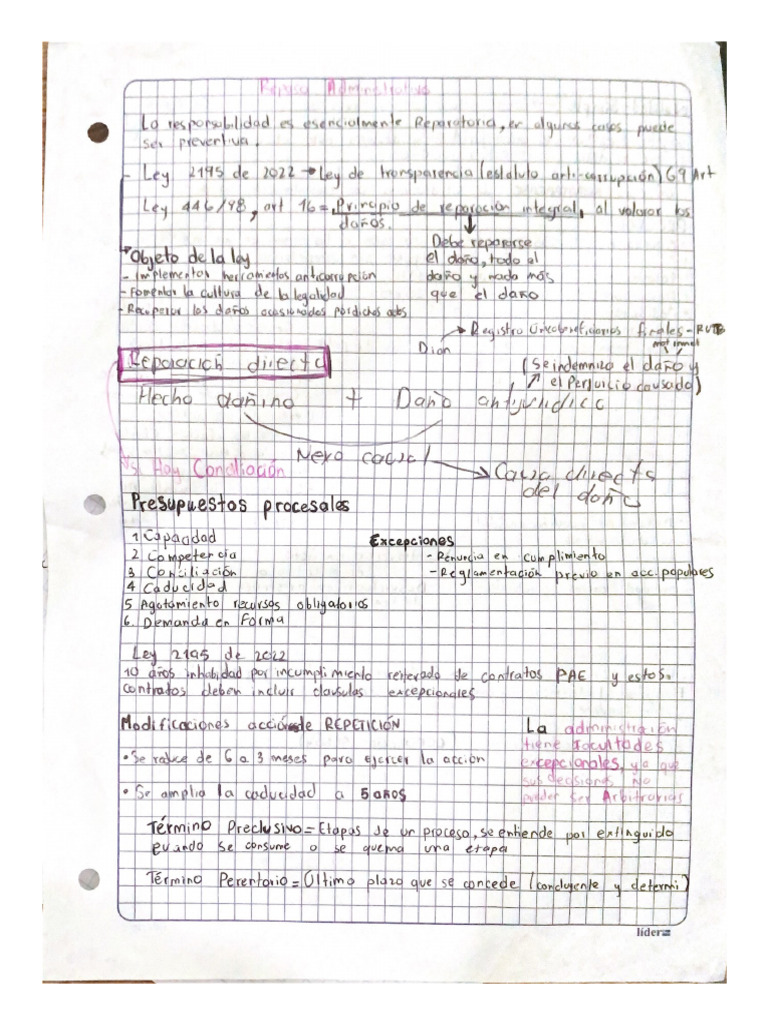 Repaso Administrativo
La responsabilidad es esencialmente Reparatoria, en algunos casos puede
ser preventiva.
- Ley 2195 de 2022 → Ley de transparencia (estatuto anti-corrupción) 69 Art
Ley 446/98, art 16 = Principio de reparación integral, al valorar los
daños.
Debe repararse
el daño, todo el
daño y nada más
que el daño
Objeto de la ley
- Implementar herramientas anticorrupción
- Fomentar la cultura de la legalidad
- Recuperar los daños ocasionados por dichos actos
Dian → Registro Único beneficiarios finales - RUB
Reparación directa
(Se indemniza el daño y
el perjuicio causado)
Hecho dañino + Daño antijurídico
Nexo causal → Causa directa
del daño
Si Hay Conciliación
Presupuestos procesales
1 Capacidad
2 Competencia
3 Conciliación
4 Caducidad
5 Agotamiento recursos obligatorios
6. Demanda en Forma
Excepciones
- Renuencia en cumplimiento
- Reglamentación previo en acc. populares
Ley 2195 de 2022
10 años inhabilidad por incumplimiento reiterado de contratos PAE y estos
contratos deben incluir clausulas excepcionales
Modificaciones acción de REPETICIÓN
• Se reduce de 6 a 3 meses para ejercer la acción
• Se amplia la caducidad a 5 años
La administración
tiene facultades
excepcionales, ya que
sus decisiones No
pueden ser Arbitrarias
Término Preclusivo = Etapas de un proceso, se entiende por extinguido
cuando se consume o se quema una etapa
Término Perentorio = Último plazo que se concede (concluyente y determi)
líder